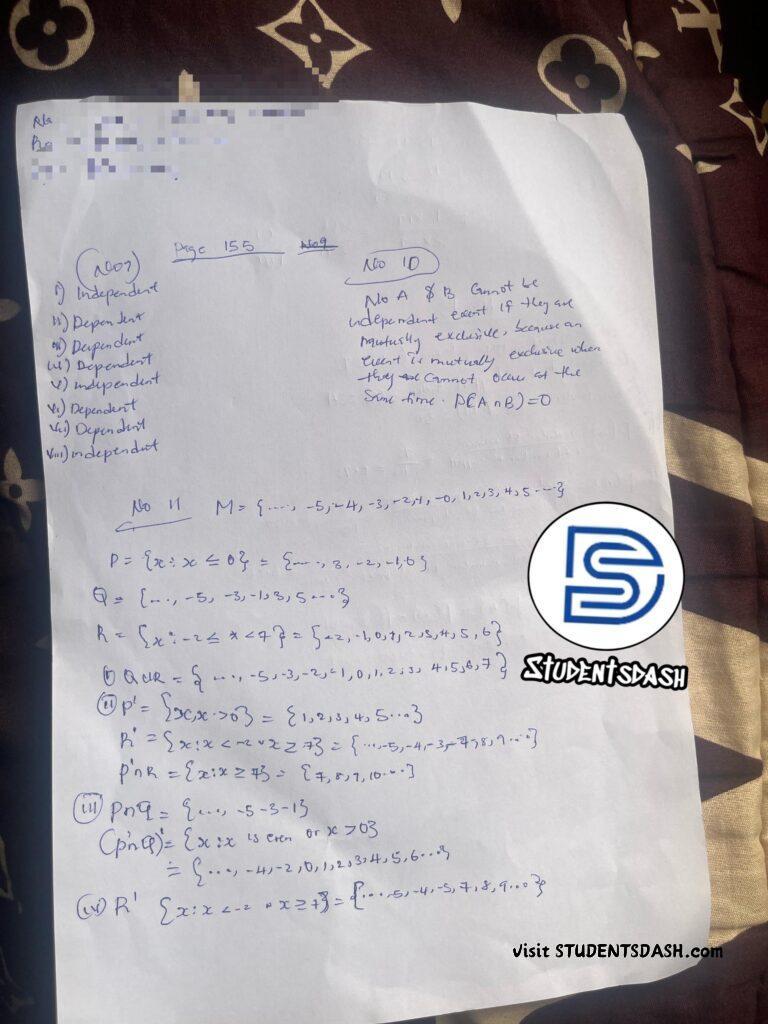 Page 155
No 9
i) Independent
ii) Dependent
iii) Dependent
iv) Dependent
v) Independent
vi) Dependent
vii) Dependent
viii) independent
No 10
No A & B Cannot be
independent event if they are
mutually exclusive, because an
event is mutually exclusive when
they Cannot occur at the
Same time. P(A ∩ B) = 0
No 11 M = {...., -5, -4, -3, -2, -1, -0, 1, 2, 3, 4, 5 ....}
P = {x : x ≤ 0} = {...., 3, -2, -1, 0}
Q = {..., -5, -3, -1, 3, 5 ....}
R = {x : -2 ≤ x < 7} = {-2, -1, 0, 1, 2, 3, 4, 5, 6}
(i) Q ∪ R = {...., -5, -3, -2, -1, 0, 1, 2, 3, 4, 5, 6, 7}
(ii) P' = {x, x > 0} = {1, 2, 3, 4, 5 ...}
R' = {x : x < -2 ∪ x ≥ 7} = {..., -5, -4, -3, 7, 8, 9 ....}
P' ∩ R = {x : x ≥ 7} = {7, 8, 9, 10 ....}
(iii) P ∩ Q = {..., -5 -3 -1}
(P' ∩ Q)' = {x : x is even or x > 0}
= {...., -4, -2, 0, 1, 2, 3, 4, 5, 6 ...}
(iv) R' {x : x < -2 ∪ x ≥ 7} = {...., -5, -4, -3, 7, 8, 9 ...}
STUDENTSDASH
visit STUDENTSDASH.com